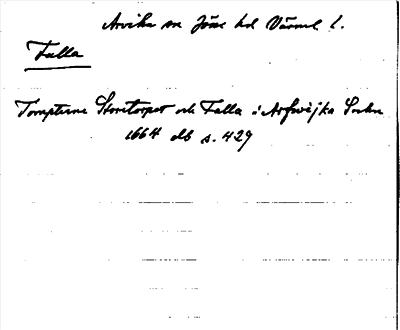 Arvika sn Jösse hd Värml. l.
Falla
Torpterne Storetorpet och Falla i Arfwijka Sochn
1664 db s. 429